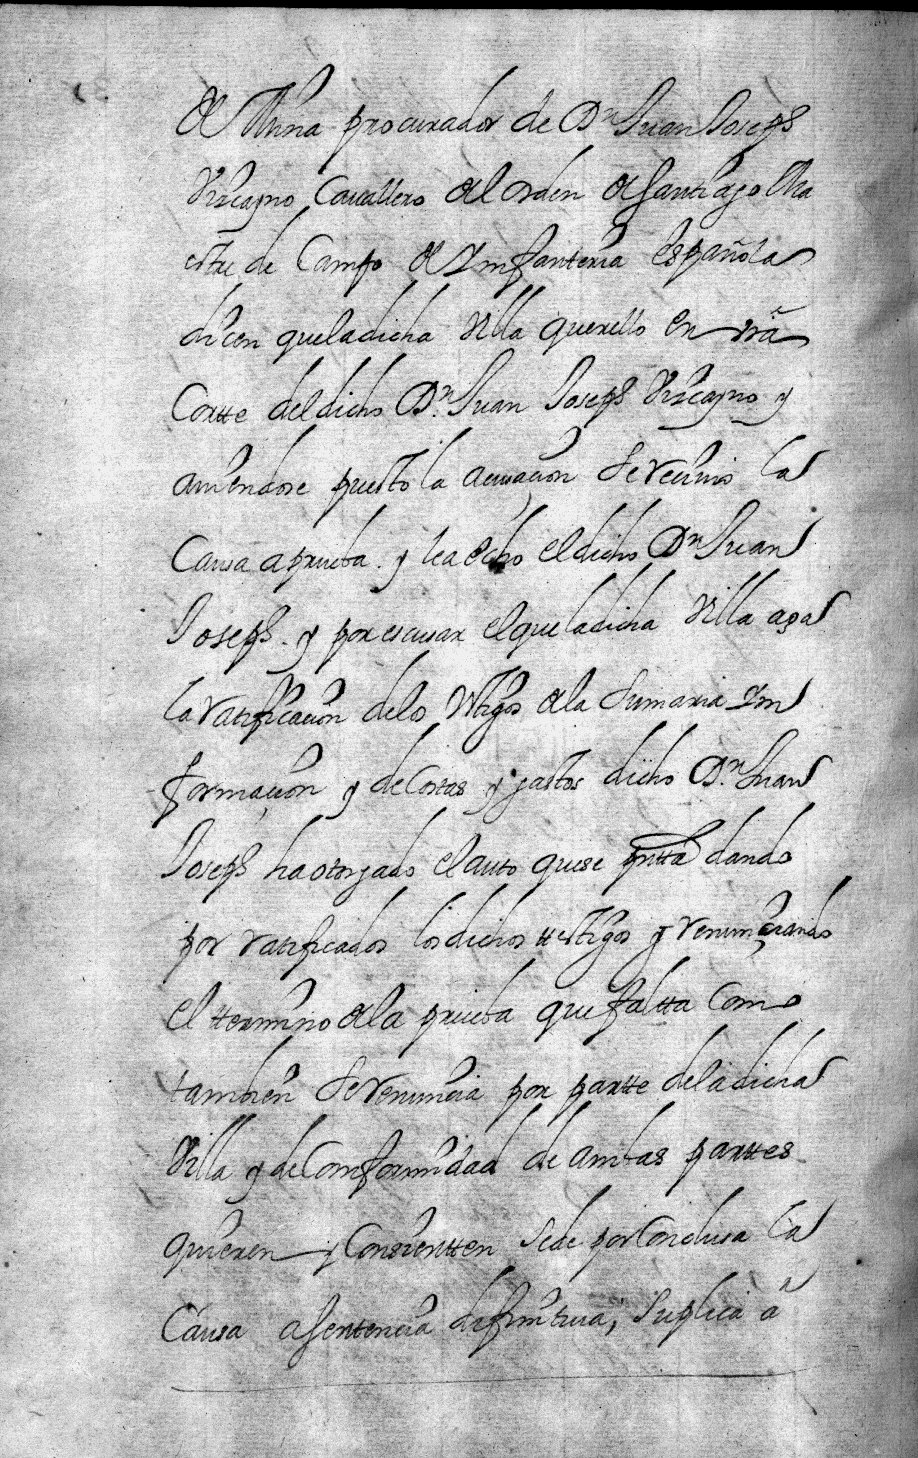 de Viana procurador de Dn Juan Joseph
Vizcayno Cavallero del orden de Santiago Ma
estre de Campo de Ymfanteria española
dicen que la dicha villa querello en vrã
Cortte del dicho Dn Juan Joseph Vizcayno y
aviendose puesto la acusacion Se recivio la
Causa a prueba. y lea echo el dicho Dn Juan
Joseph. y por escusar el que la dicha villa aga
la ratificacion de los tstigos de la Sumaria Ym
formaçion y de Costas y gastos dicho Dn Juan
Joseph ha otorgado el auto que se pntta dando
por ratificados los dichos ttestigos y renumçiando
el ttermino de la prueba que faltta Como
tambien Se renumcia por partte de la dicha
Villa y de Comformidad de ambas parttes
quieren y Consientten Se de por Conclusa la
Causa a Sentencia difinitiva, Suplica a